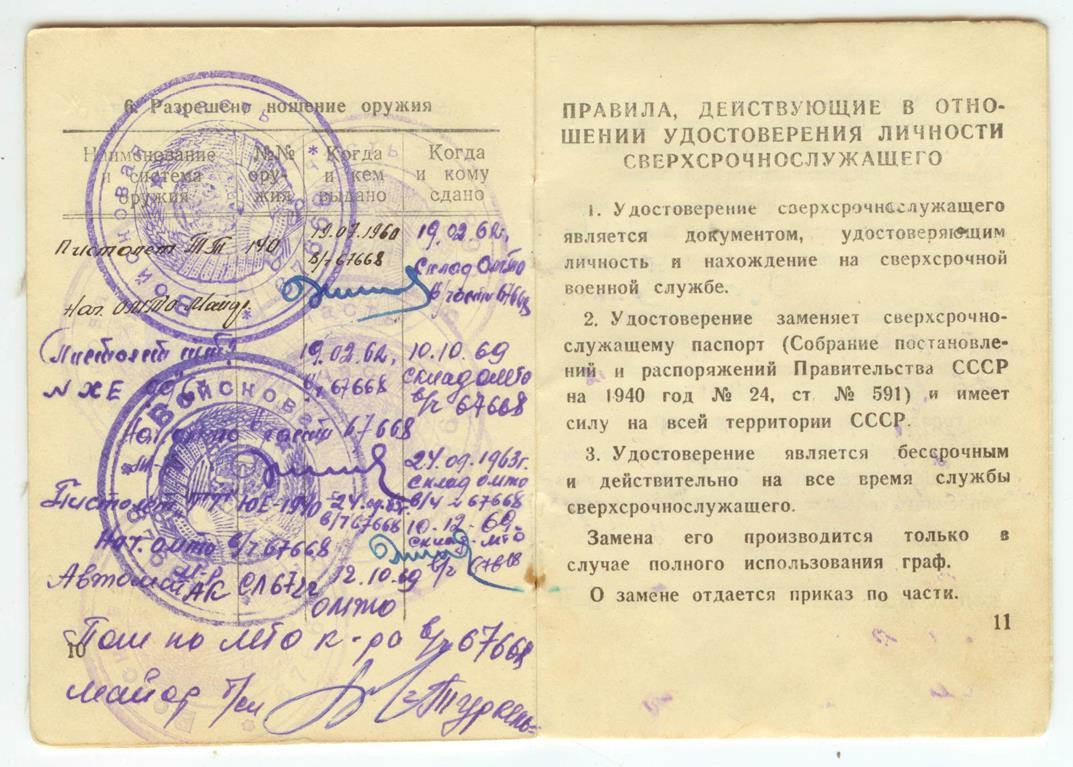 6. Разрешено ношение оружия
Наименование и система оружия
№№ оружия
Когда и кем выдано
Когда и кому сдано
Пистолет ТТ 140 19.07.1960 19.02.62г,
в/ч 67668 склад ОМТО
в/части 67668
Нач. ОМТО майор
Пистолет 19.02.62, 10.10.69
N ХЕ в/ч 67668 склад ОМТО
в/ч 67668
части 67668
24.09.1963г.
склад ОМТО
Пистолет ТТ ЮЕ-1940 в/ч 67668
в/ч 67668 10.12-69
Нач. ОМТО в/ч 67668 склад МТО
в/ч 67668
Автомат АК 12.10.69
ОМТО
Пом по МТО к-ра в/ч 67668
майор п/п
10
Войсковая часть
Войсковая
ПРАВИЛА, ДЕЙСТВУЮЩИЕ В ОТНО-
ШЕНИИ УДОСТОВЕРЕНИЯ ЛИЧНОСТИ
СВЕРХСРОЧНОСЛУЖАЩЕГО
1. Удостоверение сверхсрочнослужащего
является документом, удостоверяющим
личность и нахождение на сверхсрочной
военной службе.
2. Удостоверение заменяет сверхсрочно-
служащему паспорт (Собрание постановле-
ний и распоряжений Правительства СССР
на 1940 год № 24, ст № 591) и имеет
силу на всей территории СССР.
3. Удостоверение является бессрочным
и действительно на все время службы
сверхсрочнослужащего.
Замена его производится только в
случае полного использования граф.
О замене отдается приказ по части.
11